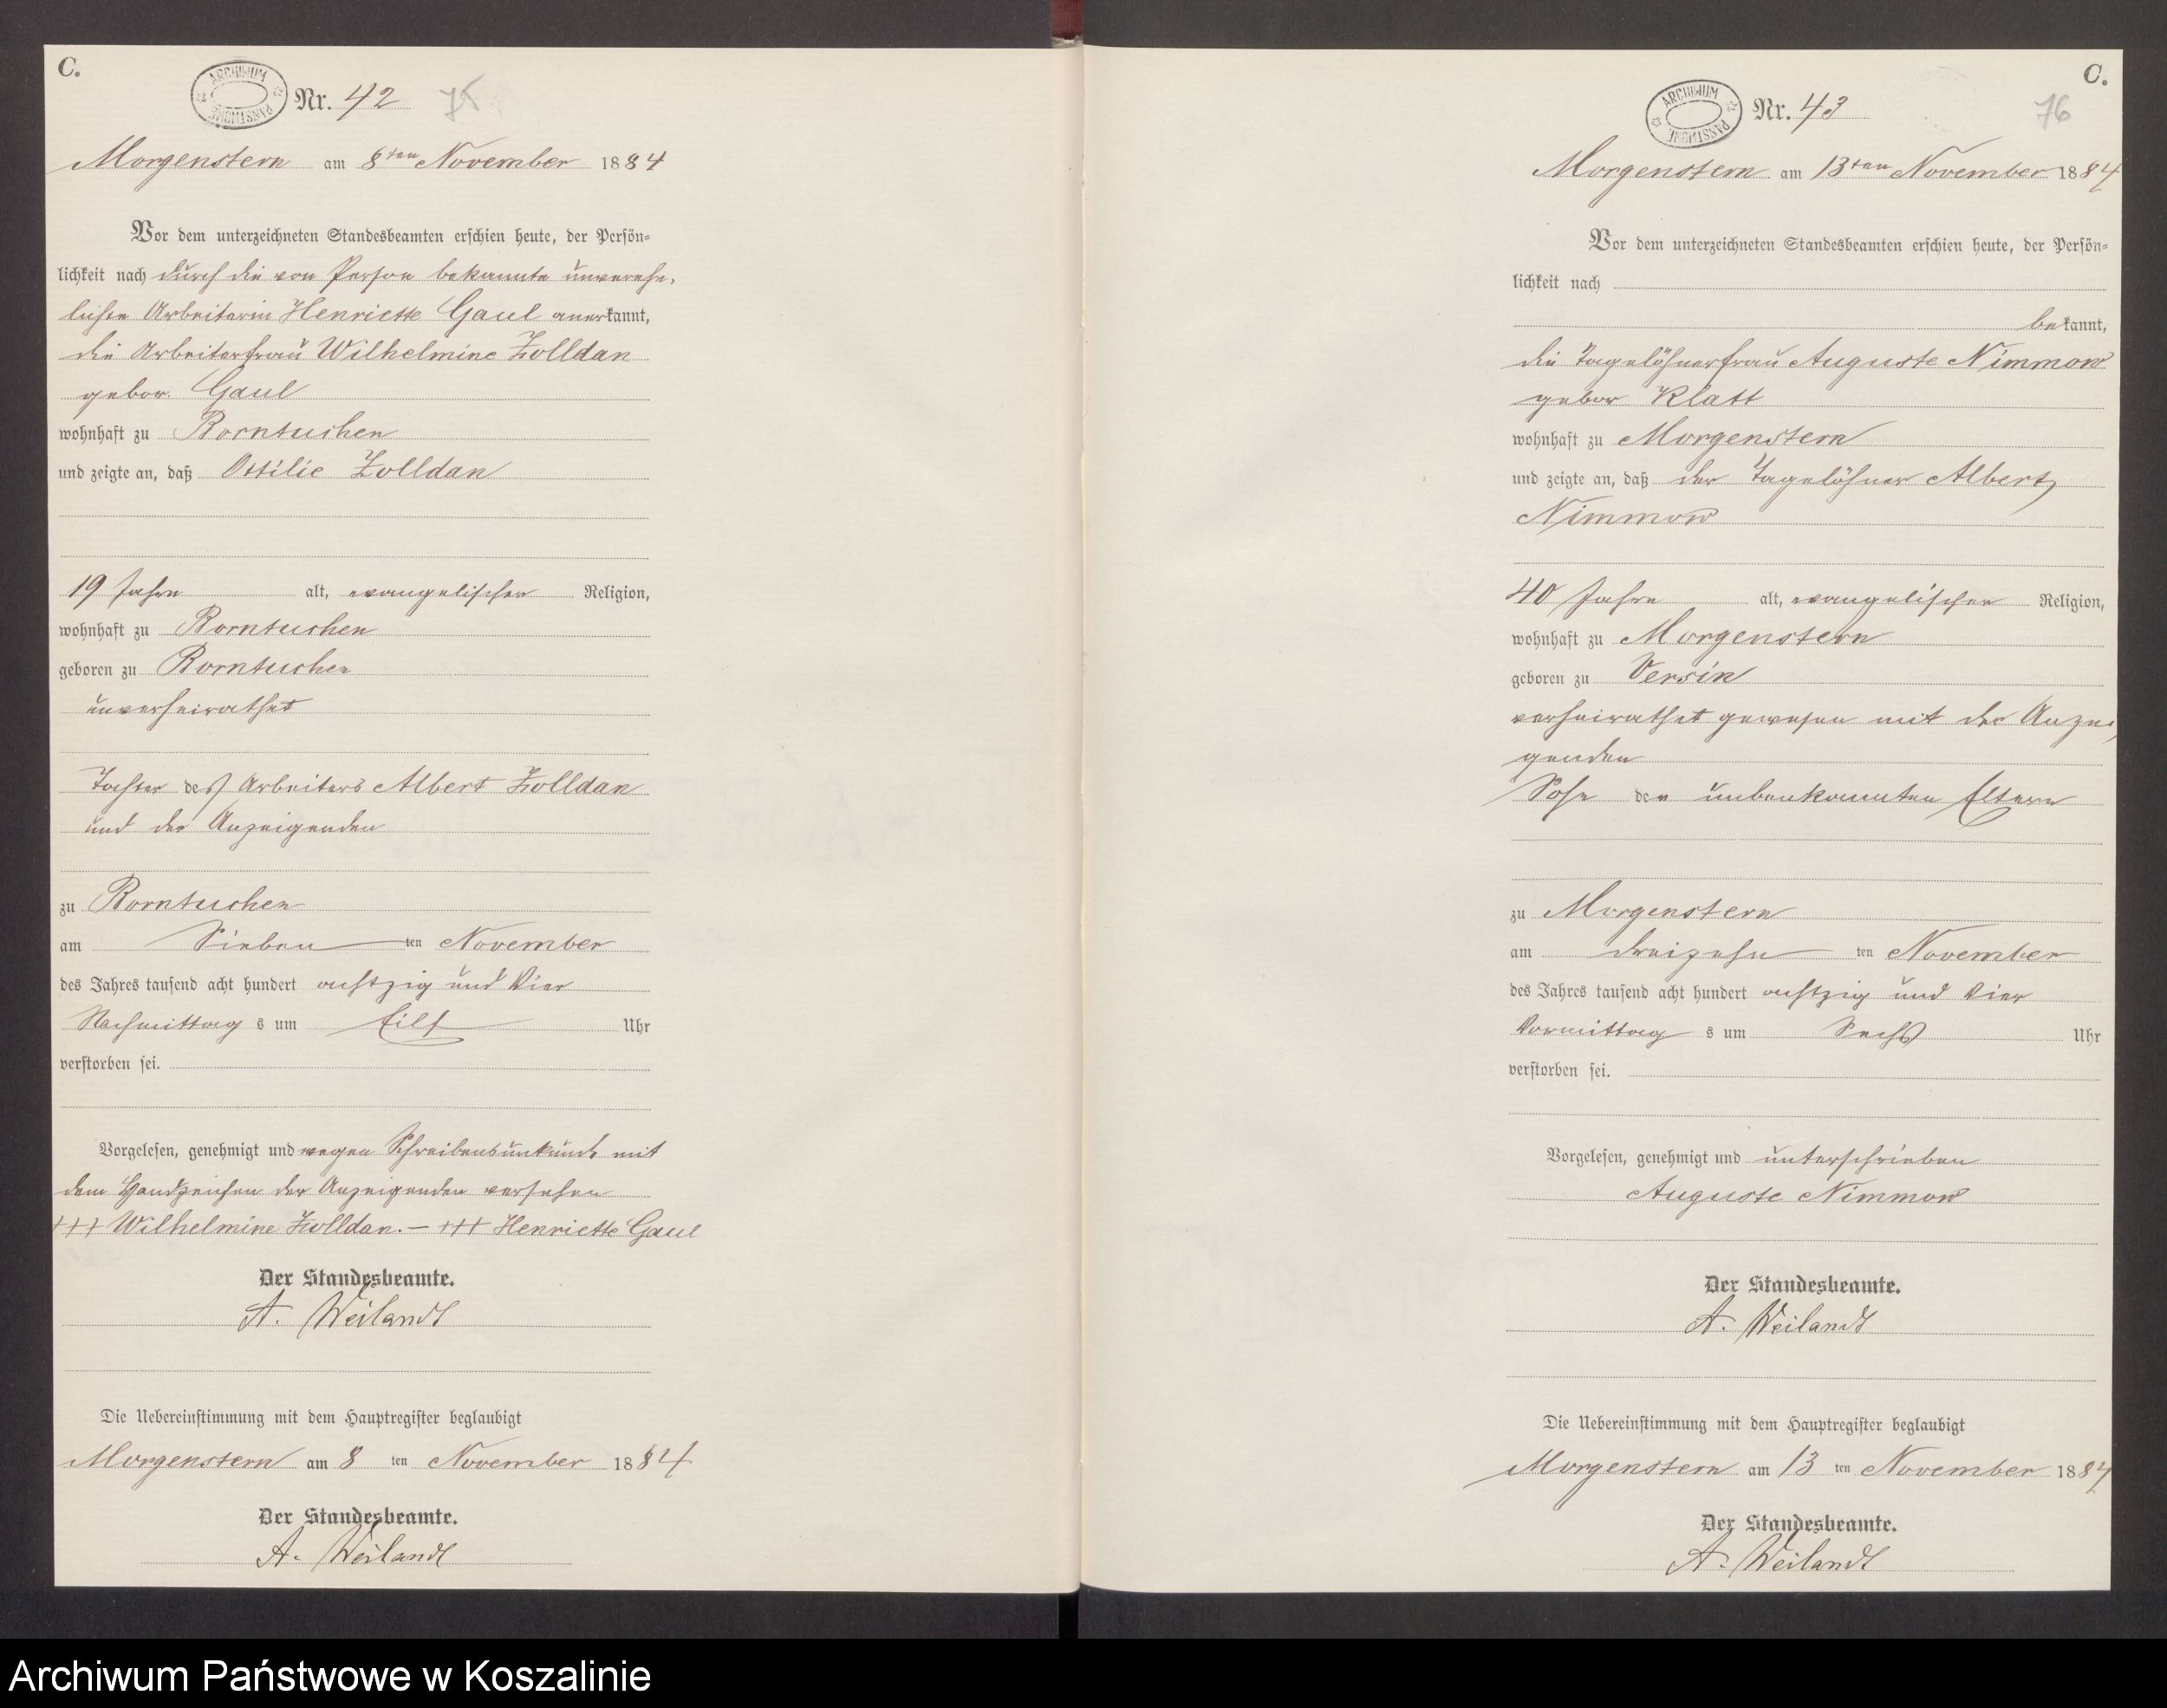 C.
ARCHIWUM PAŃSTWOWE
Nr. 42 75
Morgenstern am 8ten November 1884
Vor dem unterzeichneten Standesbeamten erschien heute, der Persön-
lichkeit nach durch die von Person bekannte unverehe-
lichte Arbeiterin Henriette Gaul anerkannt,
die Arbeiterfrau Wilhelmine Zolldan
gebor. Gaul
wohnhaft zu Borntuchen
und zeigte an, daß Ottilie Zolldan
19 Jahre alt, evangelischer Religion,
wohnhaft zu Borntuchen
geboren zu Borntuchen
unverheirathet
Tochter des Arbeiters Albert Zolldan
und der Anzeigenden
zu Borntuchen
am Sieben ten November
des Jahres tausend acht hundert achtzig und Vier
Nachmittag s um Eilf Uhr
verstorben sei.
Vorgelesen, genehmigt und wegen Schreibensunkunde mit
dem Handzeichen der Anzeigenden versehen
+++ Wilhelmine Zolldan. — +++ Henriette Gaul
Der Standesbeamte.
A. Weilandt
Die Uebereinstimmung mit dem Hauptregister beglaubigt
Morgenstern am 8 ten November 1884
Der Standesbeamte.
A. Weilandt
C.
ARCHIWUM PAŃSTWOWE
Nr. 43 76
Morgenstern am 13ten November 1884
Vor dem unterzeichneten Standesbeamten erschien heute, der Persön-
lichkeit nach
bekannt,
die Tagelöhnerfrau Auguste Nimmow
gebor Klatt
wohnhaft zu Morgenstern
und zeigte an, daß der Tagelöhner Albert
Nimmow
40 Jahre alt, evangelischer Religion,
wohnhaft zu Morgenstern
geboren zu Versin
verheirathet gewesen mit der Anzei-
genden
Sohn der unbenkannten Eltern
zu Morgenstern
am dreizehn ten November
des Jahres tausend acht hundert achtzig und Vier
Vormittag s um Sechs Uhr
verstorben sei.
Vorgelesen, genehmigt und unterschrieben
Auguste Nimmow
Der Standesbeamte.
A. Weilandt
Die Uebereinstimmung mit dem Hauptregister beglaubigt
Morgenstern am 13 ten November 1884
Der Standesbeamte.
A. Weilandt
Archiwum Państwowe w Koszalinie